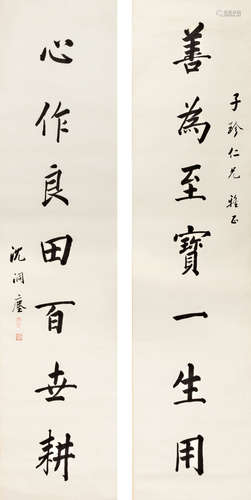 子珍仁兄 雅正
善為至寶一生用
心作良田百世耕